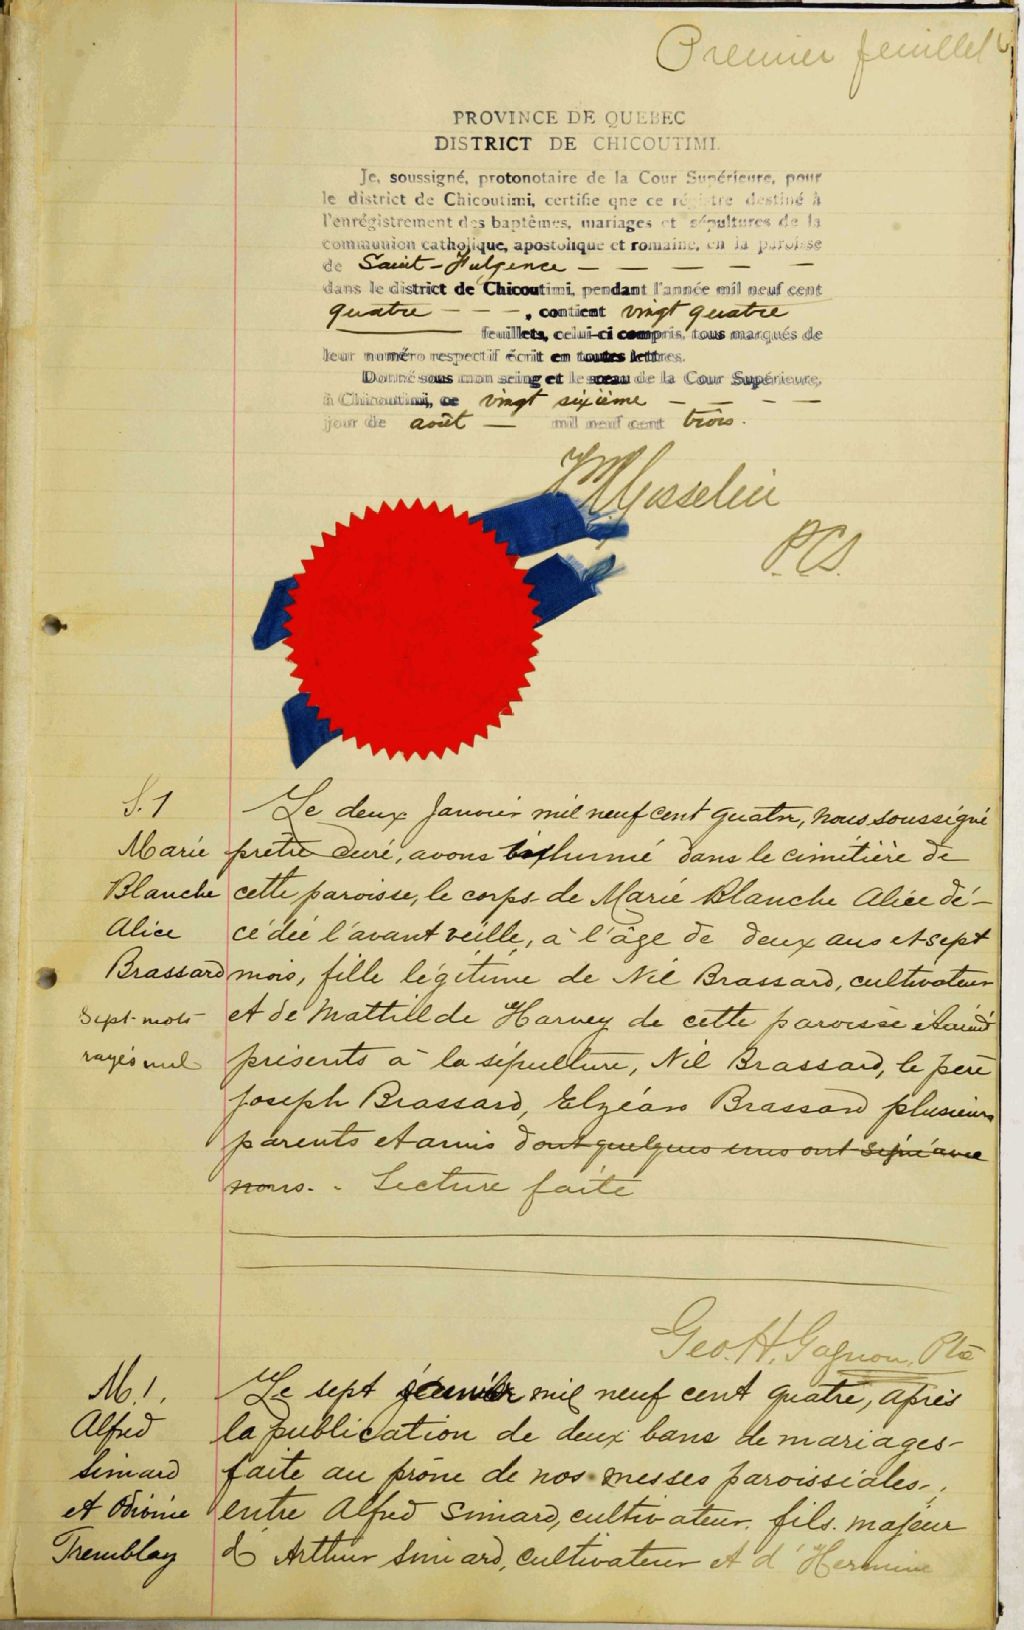 Premier feuillet
PROVINCE DE QUEBEC
DISTRICT DE CHICOUTIMI.
Je, soussigné, protonotaire de la Cour Supérieure, pour
le district de Chicoutimi, certifie que ce régistre destiné à
l'enrégistrement des baptêmes, mariages et sépultures de la
communion catholique, apostolique et romaine, en la paroisse
de Saint-Fulgence — — — — —
dans le district de Chicoutimi, pendant l'année mil neuf cent
quatre — — — , contient vingt quatre
feuillets, celui-ci compris, tous marqués de
leur numéro respectif écrit en toutes lettres.
Donné sous mon seing et le sceau de la Cour Supérieure,
à Chicoutimi, ce vingt sixième — — — —
jour de août — mil neuf cent trois.
Gosselin
P.C.S.
S. 1
Marie
Blanche
Alice
Brassard
Sept mots
rayés nul
Le deux Janvier mil neuf cent quatre, nous soussigné
prêtre curé, avons inhumé dans le cimitière de
cette paroisse, le corps de Marie Blanche Alice dé-
cédée l'avant veille, à l'âge de deux ans et sept
mois, fille légitime de Nil Brassard, cultivateur
et de Mathilde Harvey de cette paroisse étaient
présents à la sépulture, Nil Brassard, le père
Joseph Brassard, Elzéar Brassard plusieurs
parents et amis dont quelques uns ont signé avec
nous. - Lecture faite
Geo. H. Gagnon, Ptre
M. 1.
Alfred
Simard
et Odionie
Tremblay
Le sept janvier mil neuf cent quatre, après
la publication de deux bans de mariages
faite au prône de nos messes paroissiales,
entre Alfred Simard, cultivateur, fils majeur
d'Arthur Simard, cultivateur et d'Hermine